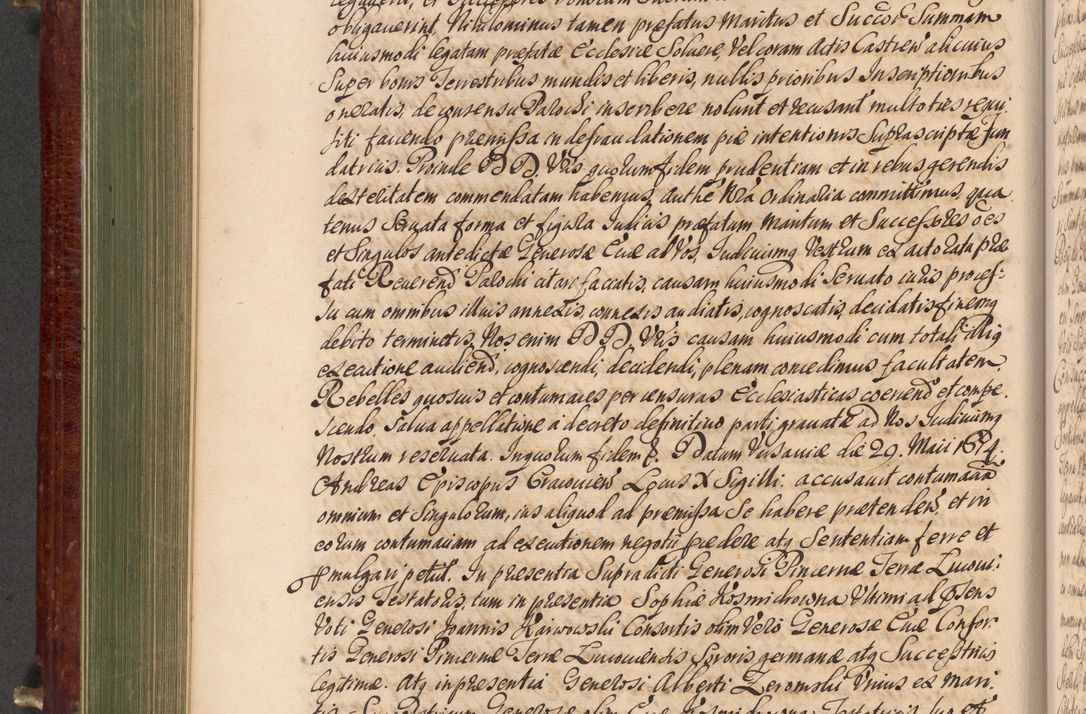 obligaverint, Nihilominus tamen præfatus Maritus et Succors Summam
huiusmodi legatam præfatæ Ecclesiæ Soluere, Vel coram Actis Castren alicuius
Super bonis Terrestribus mundis et liberis, nullis prioribus Inscriptionibus
oneratis, de consensu Parochi inscribere nolunt et recusant multoties requi:
siti faciendo præmissa in defraudationem piæ intentionis Suprascriptæ Fun
datricis. Proinde DD. Vris quorum fidem prudentiam et in rebus gerendis
dexteritatem commendatam habemus, Authe Nra Ordinaria committimus, qua
tenus Seruata forma et figura Iudicii præfatum Maritum et Successores oes
et Singulos antedictæ Generosæ Euæ ad Vos, Iudiciumq Vestrum ex actoratu præ
fati Reuerend Parochi citari faciatis, causam huiusmodi Seruato iuris proces:
su cum omnibus illius annexis, connexis audiatis, cognoscatis, decidatis finemq
debito terminetis, Nos enim DD. Vris causam huiusmodi cum totali illiq
executione audiend, cognoscendi, decidendi, plenam concedimus facultatem
Rebelles quosuis et contumaces per censuras Ecclesiasticas coercend et compe
scendo. Salua appellatione a decreto definitiuo parti grauatæ ad Nos Iudiciumq
Nostrum reseruata. In quorum fidem &. Datum Varsauiæ die 29. Maii 1674.
Andreas Episcopus Cracouien Locus X Sigilli: accusauit contumaciã
omnium et Singulorum, ius aliquod ad præmissa Se habere prætenden, et in
eorum contumaciam ad executionem negotii procedere atq Sententiam ferre et
pmulgari petiit. In presentia Supradicti Generosi Pincernæ Terræ Liuoui:
ensis Testatoris, tum in præsentia Sophiæ Kosmidrowna Vltimi ad præsens
Voti Generosi Joannis Karwowski Consortis olim Vero Generosæ Euæ Consor
tis Generosi Pincernæ Terræ Liuouiensis Sororis germanæ atq Successtricis
legitimæ. Atq in presentia Generosi Alberti Zeromski Vnius ex Mari: